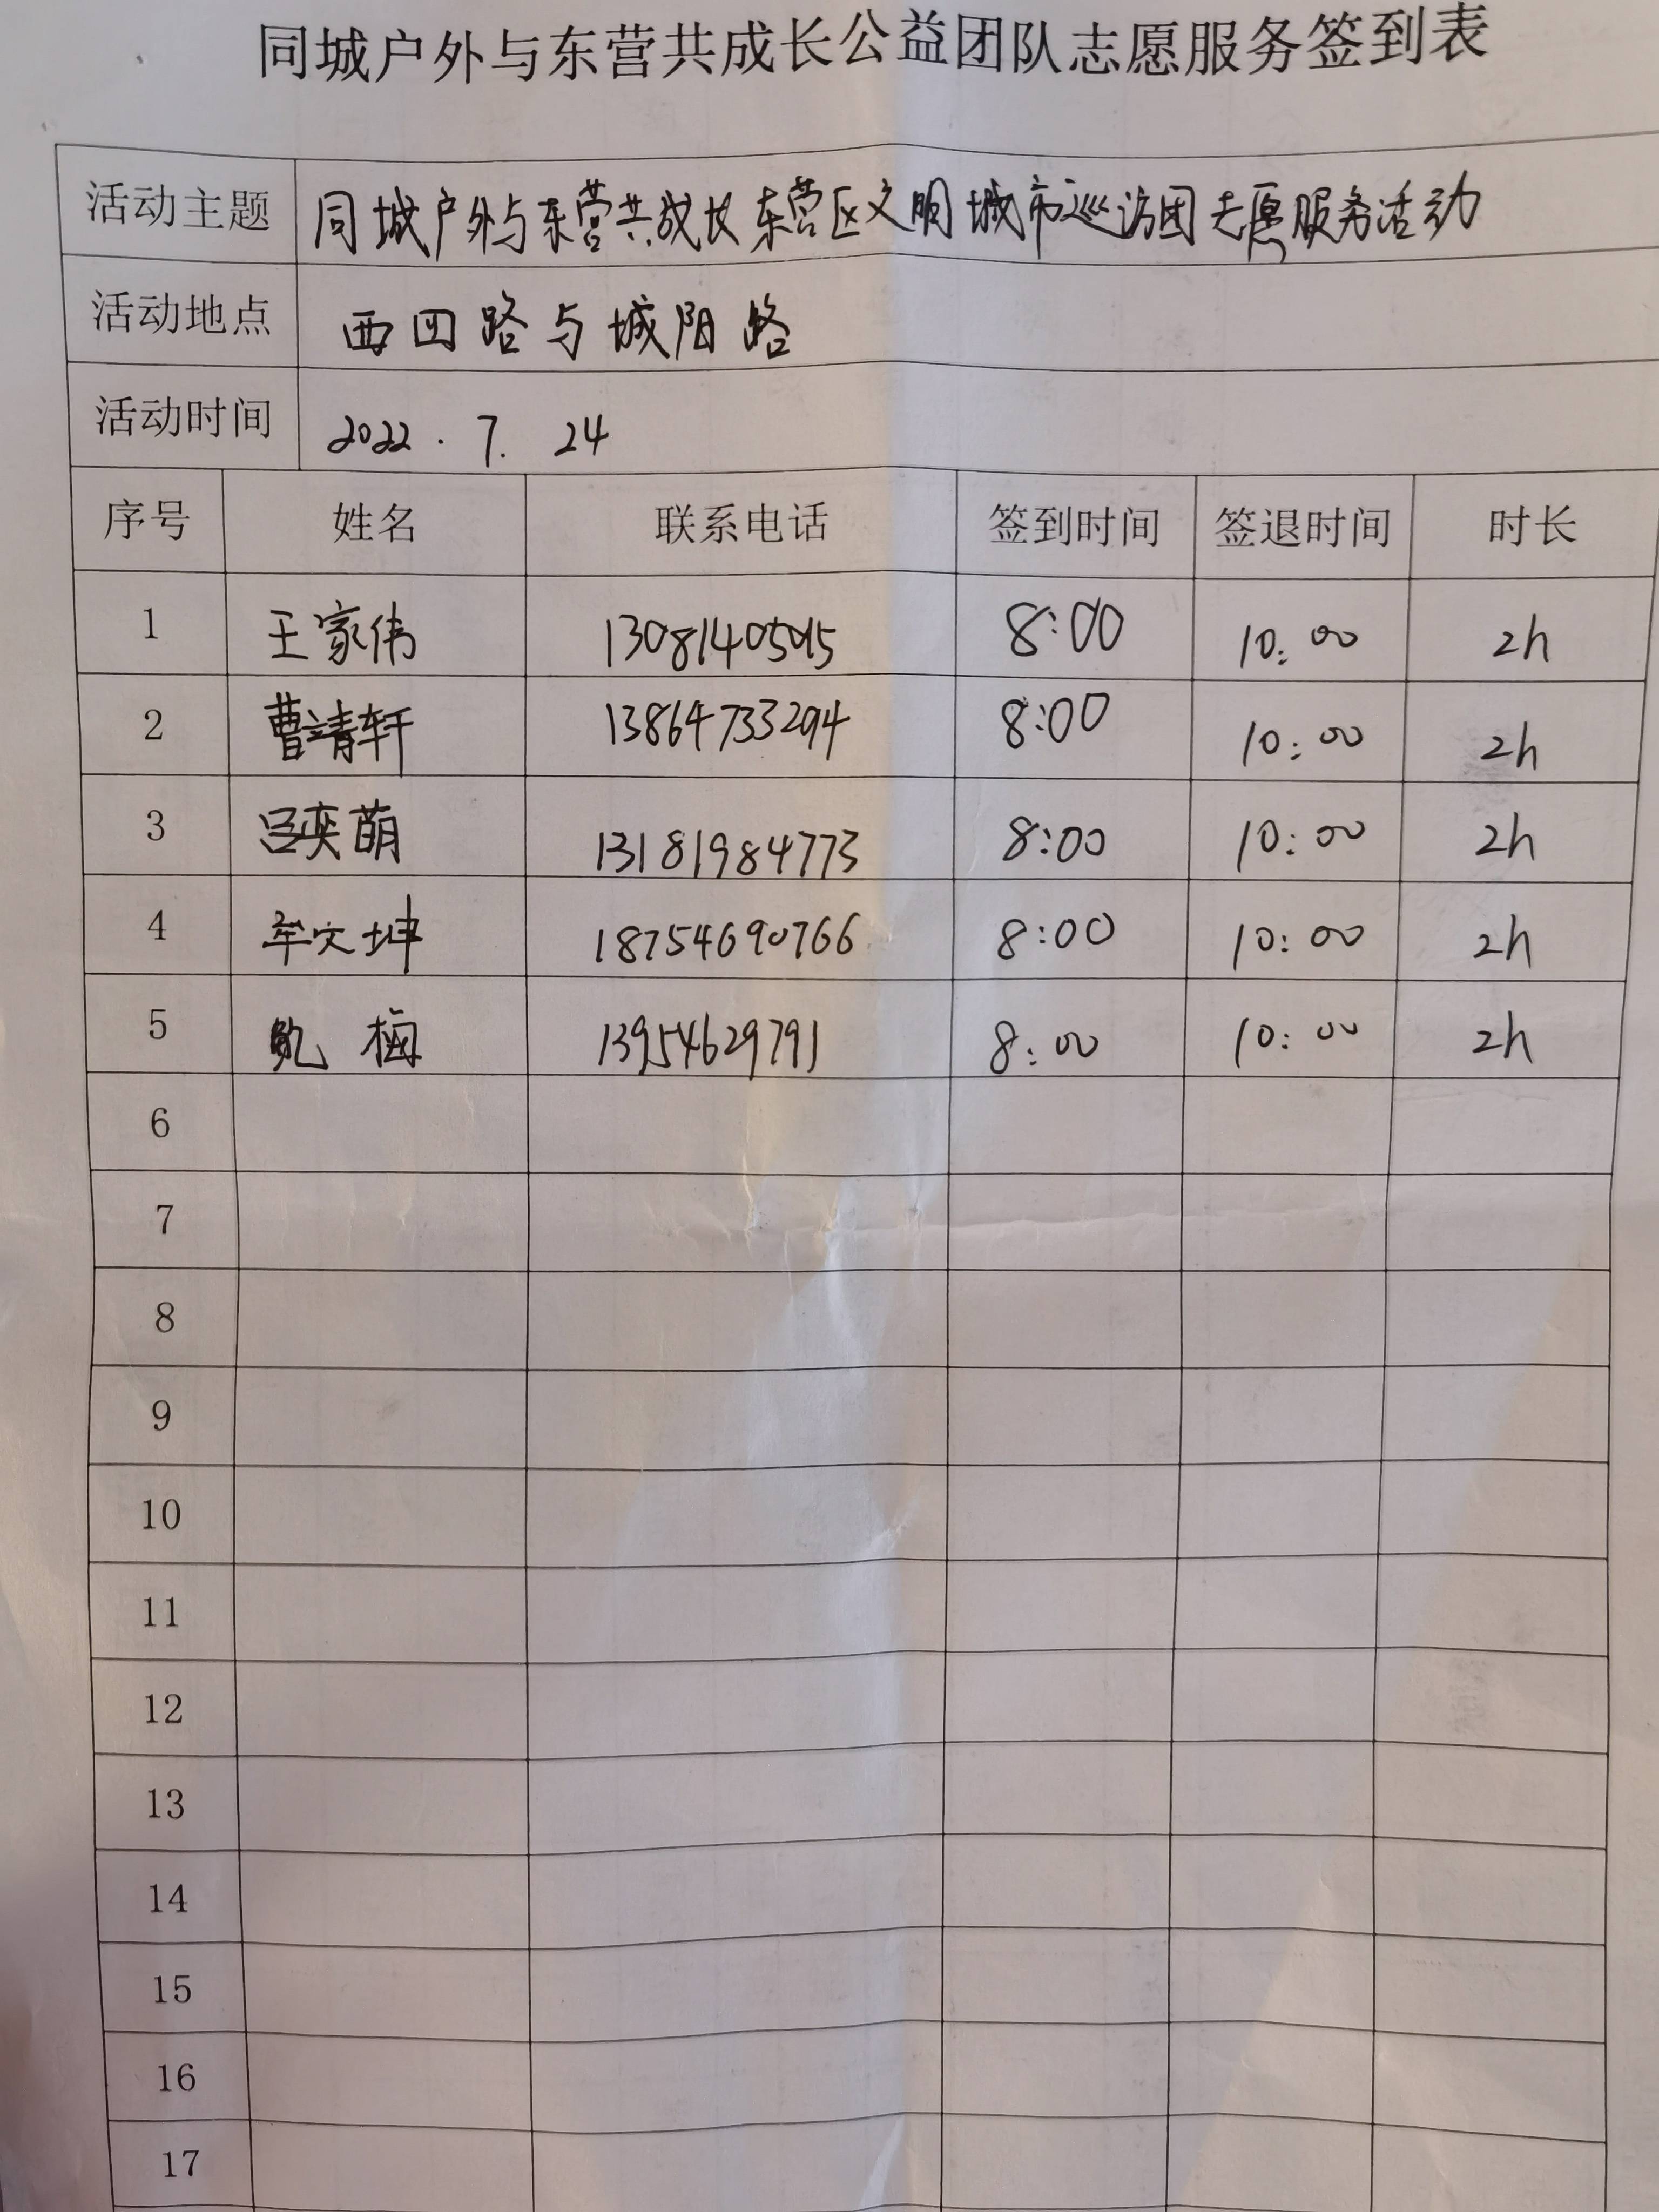 同城户外与东营共成长公益团队志愿服务签到表
活动主题 同城户外与东营共成长东营区文明城市巡访团志愿服务活动
活动地点 西四路与城阳路
活动时间 2022.7.24
序号 姓名 联系电话 签到时间 签退时间 时长
1 王家伟 8:00 10:00 2h
2 曹靖轩 13864733294 8:00 10:00 2h
3 吕奕萌 13181984773 8:00 10:00 2h
4 牟文坤 18754690766 8:00 10:00 2h
5 梅 13954629791 8:00 10:00 2h
6
7
8
9
10
11
12
13
14
15
16
17